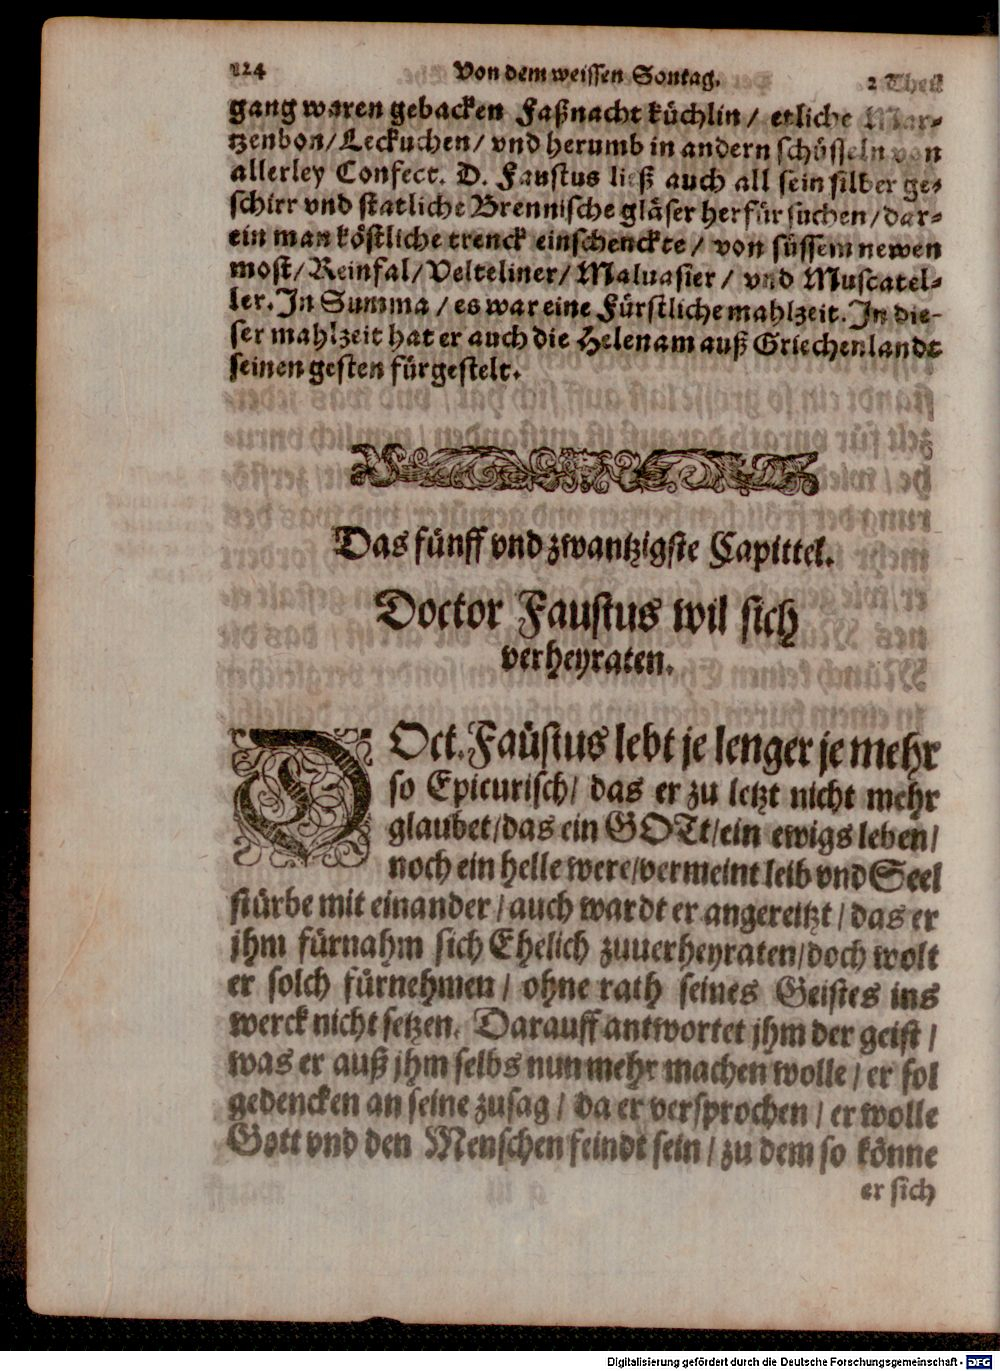 124 Von dem weissen Sontag. 2 Theil
gang waren gebacken Faßnacht küchlin / etliche Mar-
tzenbon/Leckuchen/ vnd herumb in andern schüsseln von
allerley Confect. D. Faustus ließ auch all sein silber ge-
schirr vnd statliche Brennische gläser herfür suchen/dar-
ein man köstliche trenck einschenckte / von süssem newen
most/Reinfal/Velteliner/Maluasier / vnd Muscatel-
ler. In Summa / es war eine Fürstliche mahlzeit. In die-
ser mahlzeit hat er auch die Helenam auß Griechenlandt
seinen gesten fürgestelt.
Das fünff vnd zwantzigste Capittel.
Doctor Faustus wil sich
verheyraten.
DOct. Faustus lebt je lenger je mehr
so Epicurisch/ das er zu letzt nicht mehr
glaubet/das ein GOTt/ein ewigs leben/
noch ein helle were/vermeint leib vnd Seel
stürbe mit einander / auch wardt er angereitzt / das er
jhm fürnahm sich Ehelich zuuerheyraten/doch wolt
er solch fürnehmen / ohne rath seines Geistes ins
werck nicht setzen. Darauff antwortet jhm der geist /
was er auß jhm selbs nun mehr machen wolle / er sol
gedencken an seine zusag / da er versprochen / er wolle
Gott vnd den Menschen feindt sein / zu dem so könne
er sich
Digitalisierung gefördert durch die Deutsche Forschungsgemeinschaft - DFG